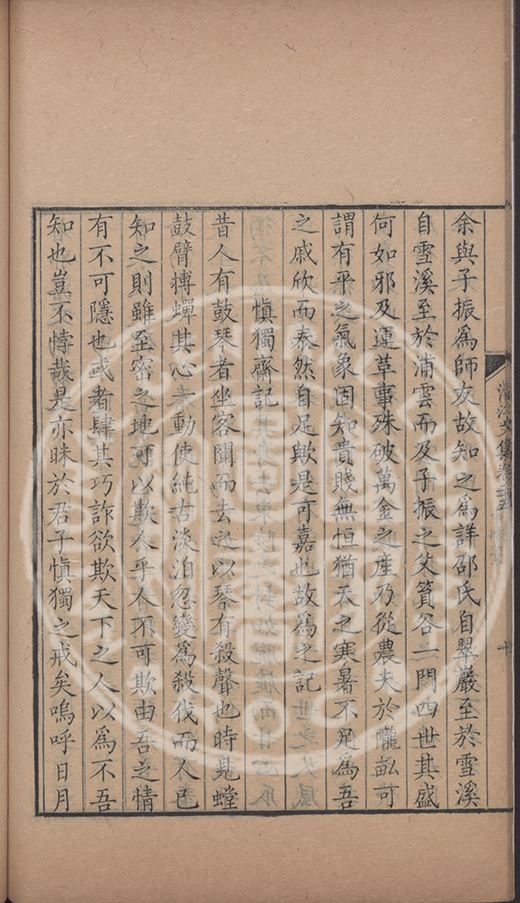 余與子振為師友故知之為詳邵氏自翠巖至於雪溪
自雪溪至於浦雲而及子振之父篔谷一門四世其盛
何如邪及運革事殊破萬金之產乃從農夫於隴畝可
謂有乎之氣象固知貴賤無恒猶天之寒暑不足為吾
之戚欣而泰然自足歟是可嘉也故為之記
慎獨齋記
昔人有鼓琴者坐客聞而去之以琴有殺聲也時見螳
鼓臂搏蟬其心未動使純古淡泊忽變為殺伐而人已
知之則雖至密之地可以欺人乎人不可欺由吾之情
有不可隱也或者肆其巧詐欲欺天下之人以為不吾
知也豈不悖哉是亦昧於君子慎獨之戒矣嗚呼日月